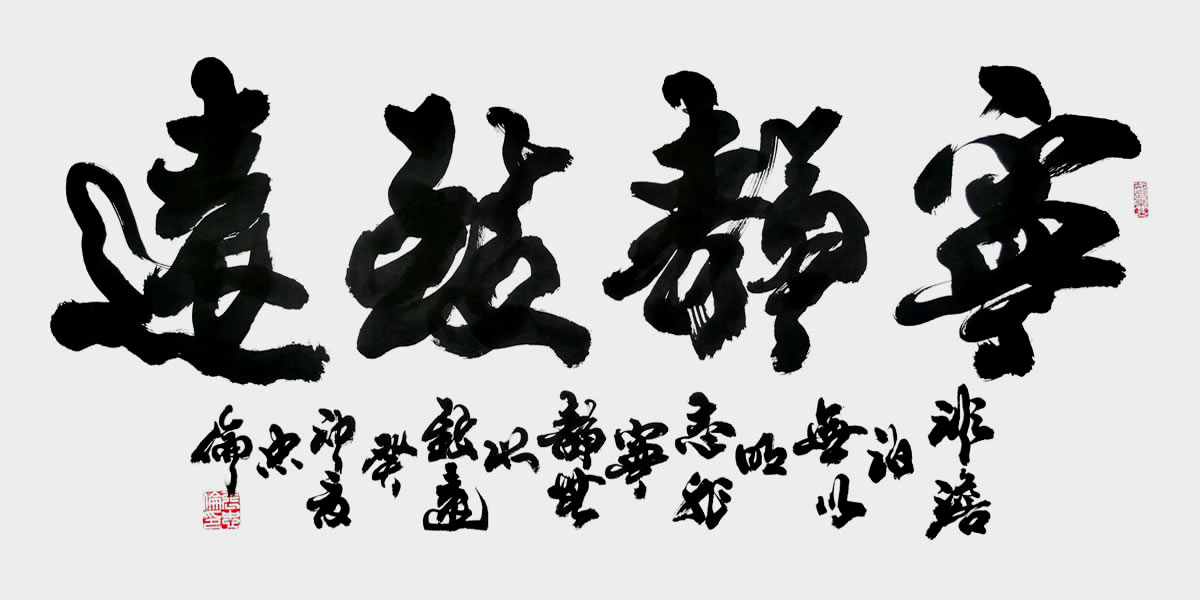 寧靜致遠
非澹泊無以明志非寧靜無以致遠癸卯夏忠倫